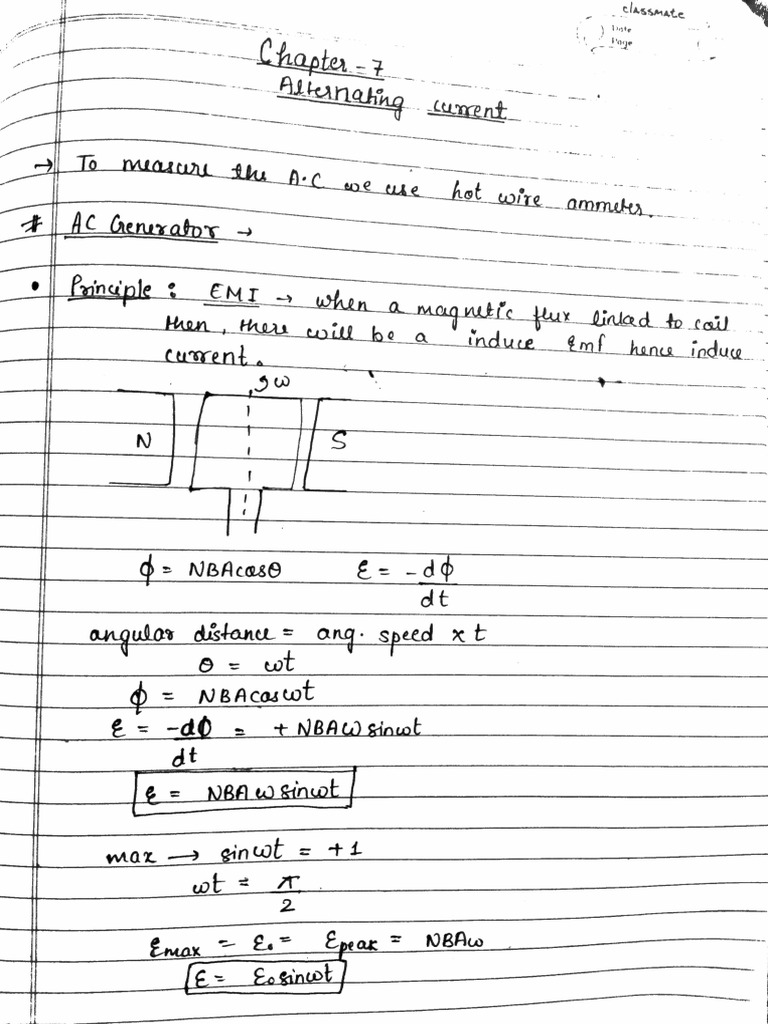 classmate
Date
Page
Chapter - 7
Alternating current
→ To measure the A.C we use hot wire ammeter.
# AC Generator →
• Principle : EMI → when a magnetic flux linked to coil
then, there will be a induce Emf hence induce
current.
ω
N S
ϕ = NBAcosθ ε = -dϕ
dt
angular distance = ang. speed x t
θ = ωt
ϕ = NBAcosωt
ε = -dϕ = + NBAω sinωt
dt
ε = NBAω sinωt
max → sinωt = +1
ωt = π
2
εmax = ε₀ = εpeak = NBAω
ε = ε₀sinωt